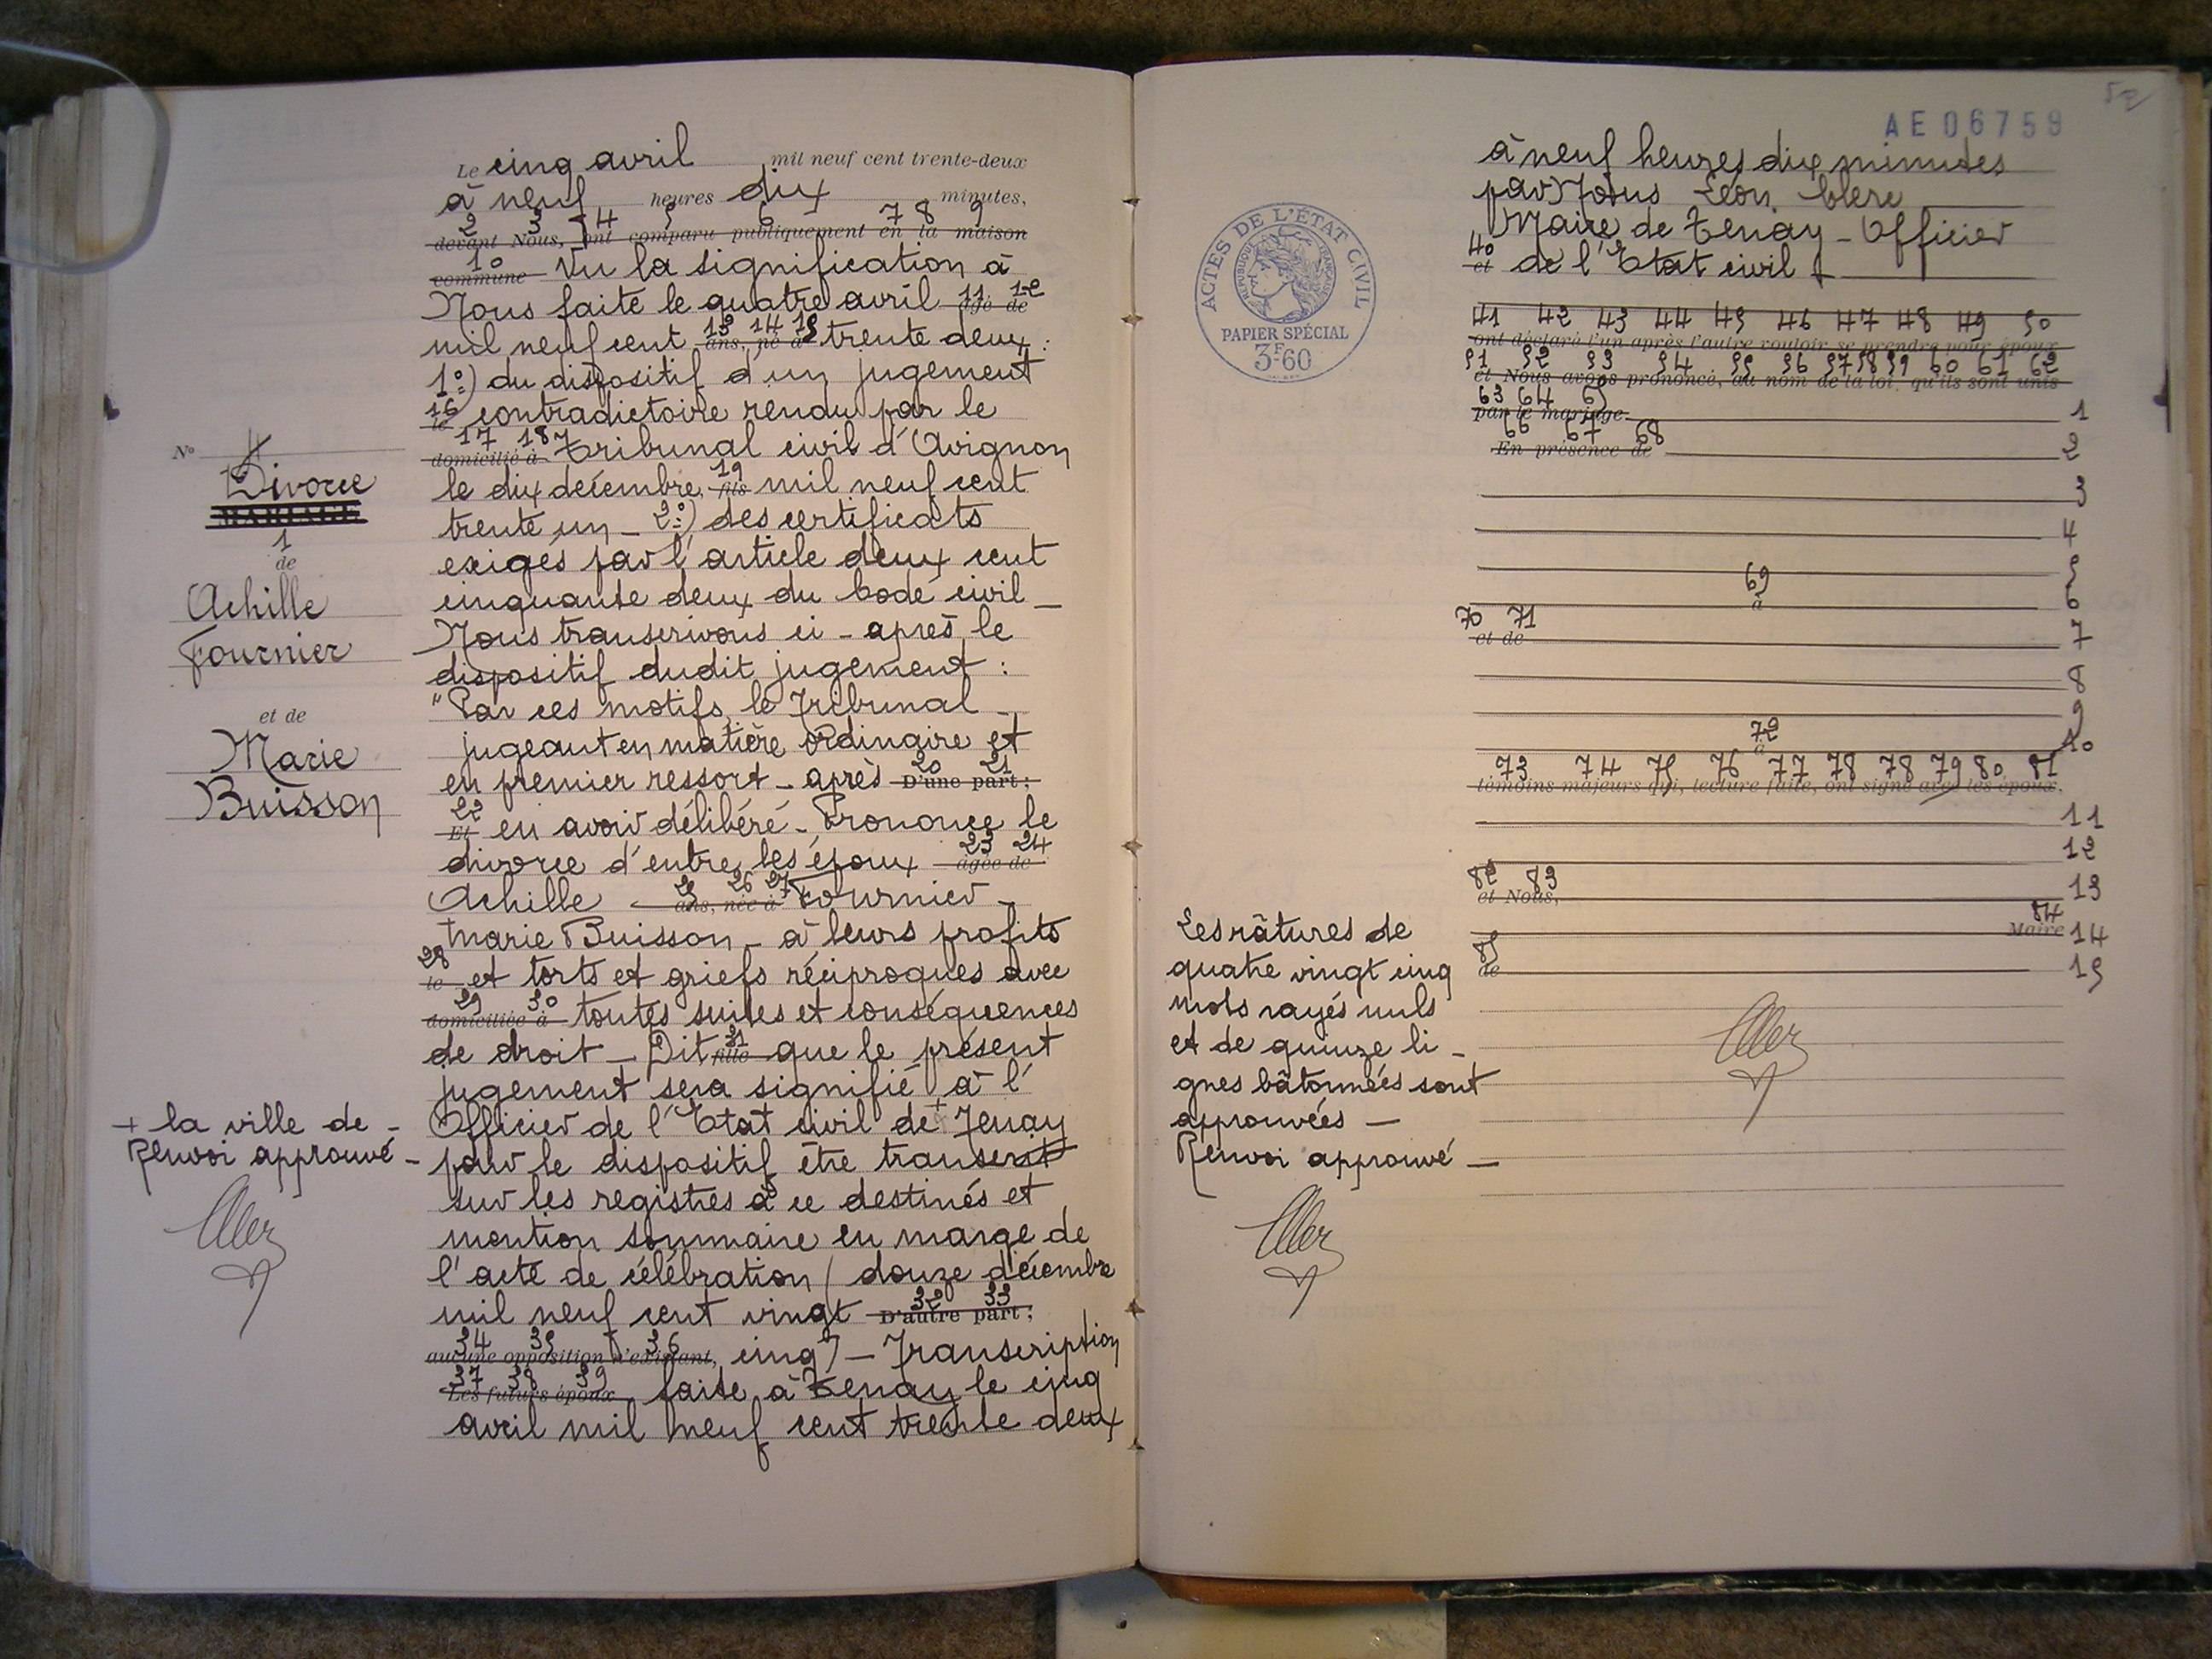 Le cinq avril mil neuf cent trente-deux
à neuf heures dix minutes,
2 3 4 5 6 7 8 9
devant Nous, ont comparu publiquement en la maison
10
commune Vu la signification à
Nous faite le quatre avril 11 12 âgé de
mil neuf cent 13 14 15 ans, né à trente deux :
1°) du dispositif d'un jugement
16 le contradictoire rendu par le
17 18 domicilié à Tribunal civil d'Avignon
le dix décembre 19 fils mil neuf cent
trente un _ 2°) des certificats
exigés par l'article deux cent
cinquante deux du Code civil _
Nous transcrivons ci-après le
dispositif dudit jugement :
"Par ces motifs, le Tribunal _
jugeant en matière ordinaire et
en premier ressort _ après 20 21 D'une part ;
22 Et en avoir délibéré _ Prononce le
divorce d'entre les époux 23 24 âgée de
Achille 25 26 27 ans, née à Fournier _
Marie Buisson _ à leurs profits
28 le et torts et griefs réciproques avec
29 30 domiciliée à toutes suites et conséquences
de droit _ Dit 31 fille que le présent
jugement sera signifié à l'
Officier de l'Etat civil de + Tenay
pour le dispositif être transcrit
sur les registres à ce destinés et
mention sommaire en marge de
l'acte de célébration (douze décembre
mil neuf cent vingt 32 33 D'autre part ;
34 35 36
aucune opposition n'existant, cinq) _ Transcription
37 38 39
Les futurs époux faite à Tenay le cinq
avril mil neuf cent trente deux
N° 4
Divorce
MARIAGE
1
de
Achille
Fournier
et de
Marie
Buisson
+ la ville de _
Renvoi approuvé _
AE06759
à neuf heures dix minutes
par Nous Léon Clerc
Maire de Tenay _ Officier
40 et de l'Etat civil
41 42 43 44 45 46 47 48 49 50
ont déclaré l'un après l'autre vouloir se prendre pour époux
51 52 53 54 55 56 57 58 59 60 61 62
et Nous avons prononcé, au nom de la loi, qu'ils sont unis
63 64 65
par le mariage. 1
66 67 68
En présence de 2
3
4
5
69
à 6
70 71
et de 7
8
9
72
à 10
73 74 75 76 77 78 78 79 80 81
témoins majeurs qui, lecture faite, ont signé avec les époux.
11
12
82 83
et Nous, 13
84
Maire 14
85
de 15
ACTES DE L'ÉTAT CIVIL
RÉPUBLIQUE FRANÇAISE
PAPIER SPÉCIAL
3F60
Les râtures de
quatre vingt cinq
mots rayés nuls
et de quinze li-
gnes bâtonnées sont
approuvées _
Renvoi approuvé _